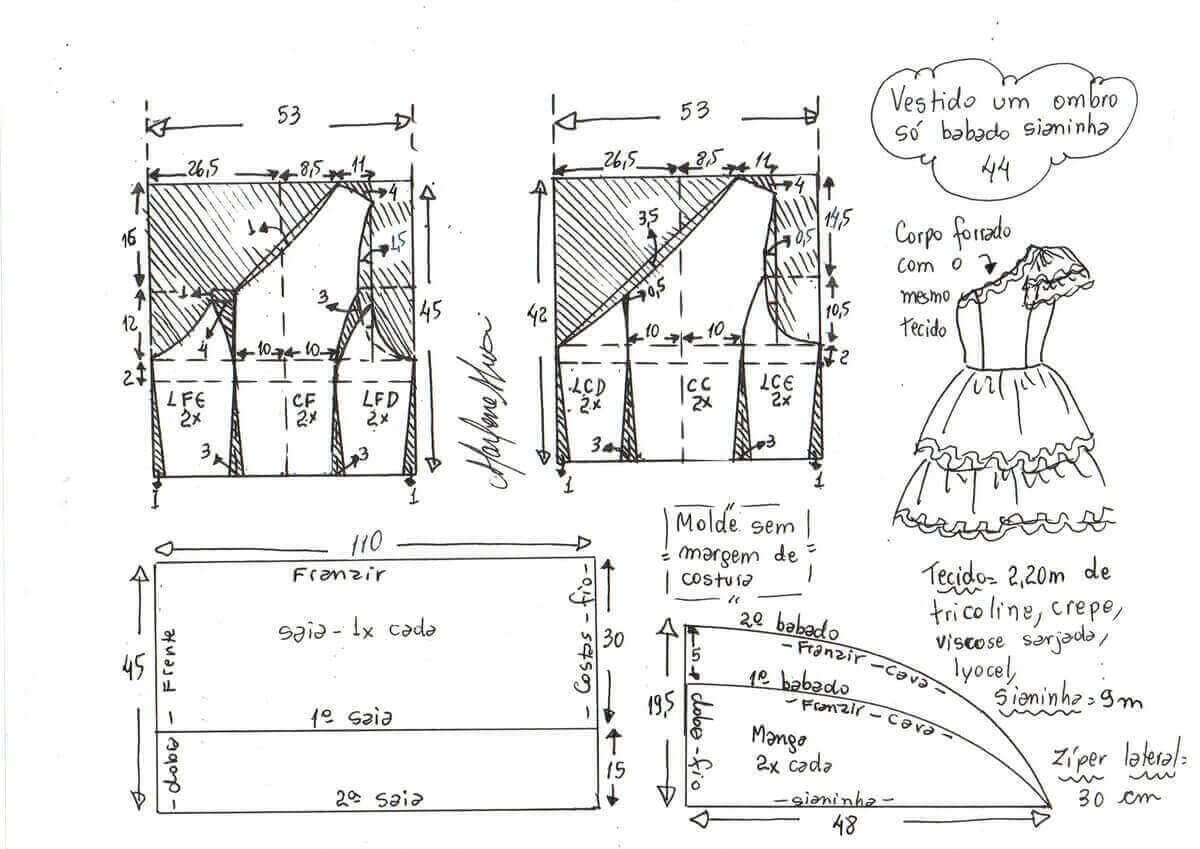 Vestido um ombro
só babado sianinha
44
53
26,5
8,5
11
4
16
1
1,5
1
3
12
45
4
10
10
2
LFE
2x
CF
2x
LFD
2x
3
3
1
1
53
26,5
8,5
11
4
3,5
14,5
0,5
42
0,5
10,5
10
10
2
LCD
2x
CC
2x
LCE
2x
3
3
1
1
Corpo forrado
com o
mesmo
tecido
110
Franzir
saia - 1x cada
45
- dobra - Frente
- Costas - fio -
30
1ª saia
15
2ª saia
Molde sem
margem de
costura
2º babado
- Franzir - Cava -
5
1º babado
- Franzir - Cava -
19,5
dobra - fio
Manga
2x cada
- sianinha -
48
Tecido = 2,20m de
tricoline, crepe,
viscose sarjada,
lyocel,
sianinha = 9m
Zíper lateral =
30 cm